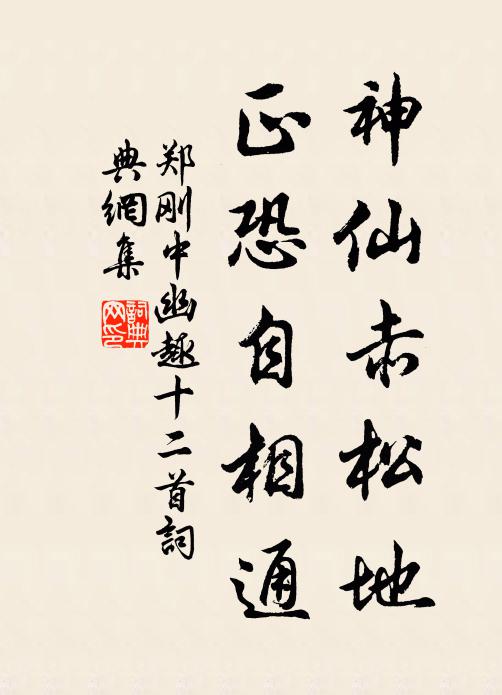 神仙赤松地
正恐自相通
郑刚中幽趣十二首詞
典網集
詞典
网印